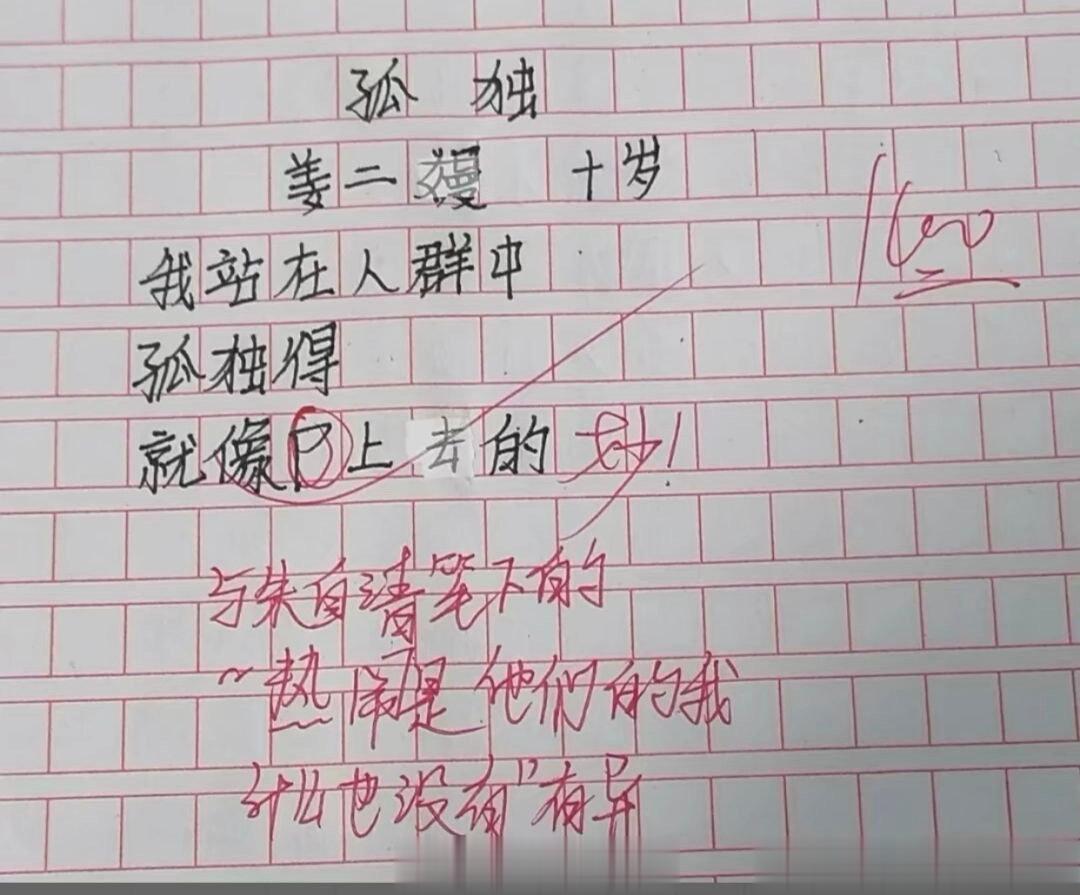 孤 独
姜二嫚 十岁
100
我站在人群中
孤独得
就像P上去的 妙!
与朱自清笔下的
"热闹是他们的我
什么也没有"有异